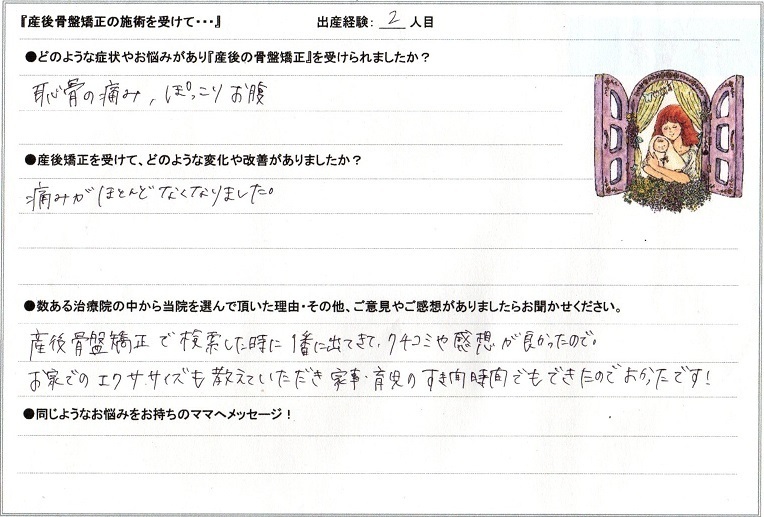 『産後骨盤矯正の施術を受けて・・・』 出産経験： 2 人目
●どのような症状やお悩みがあり『産後の骨盤矯正』を受けられましたか？
恥骨の痛み，ぽっこりお腹
●産後矯正を受けて、どのような変化や改善がありましたか？
痛みがほとんどなくなりました。
●数ある治療院の中から当院を選んで頂いた理由・その他、ご意見やご感想がありましたらお聞かせください。
産後骨盤矯正で検索した時に1番に出てきて、クチコミや感想が良かったので。
お家でのエクササイズも教えていただき家事・育児のすき間時間でもできたのでおかったです！
●同じようなお悩みをお持ちのママへメッセージ！